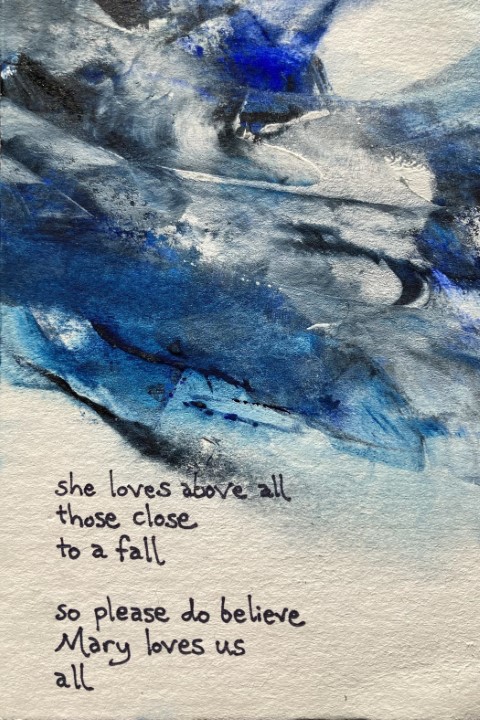 she loves above all
those close
to a fall
so please do believe
Mary loves us
all